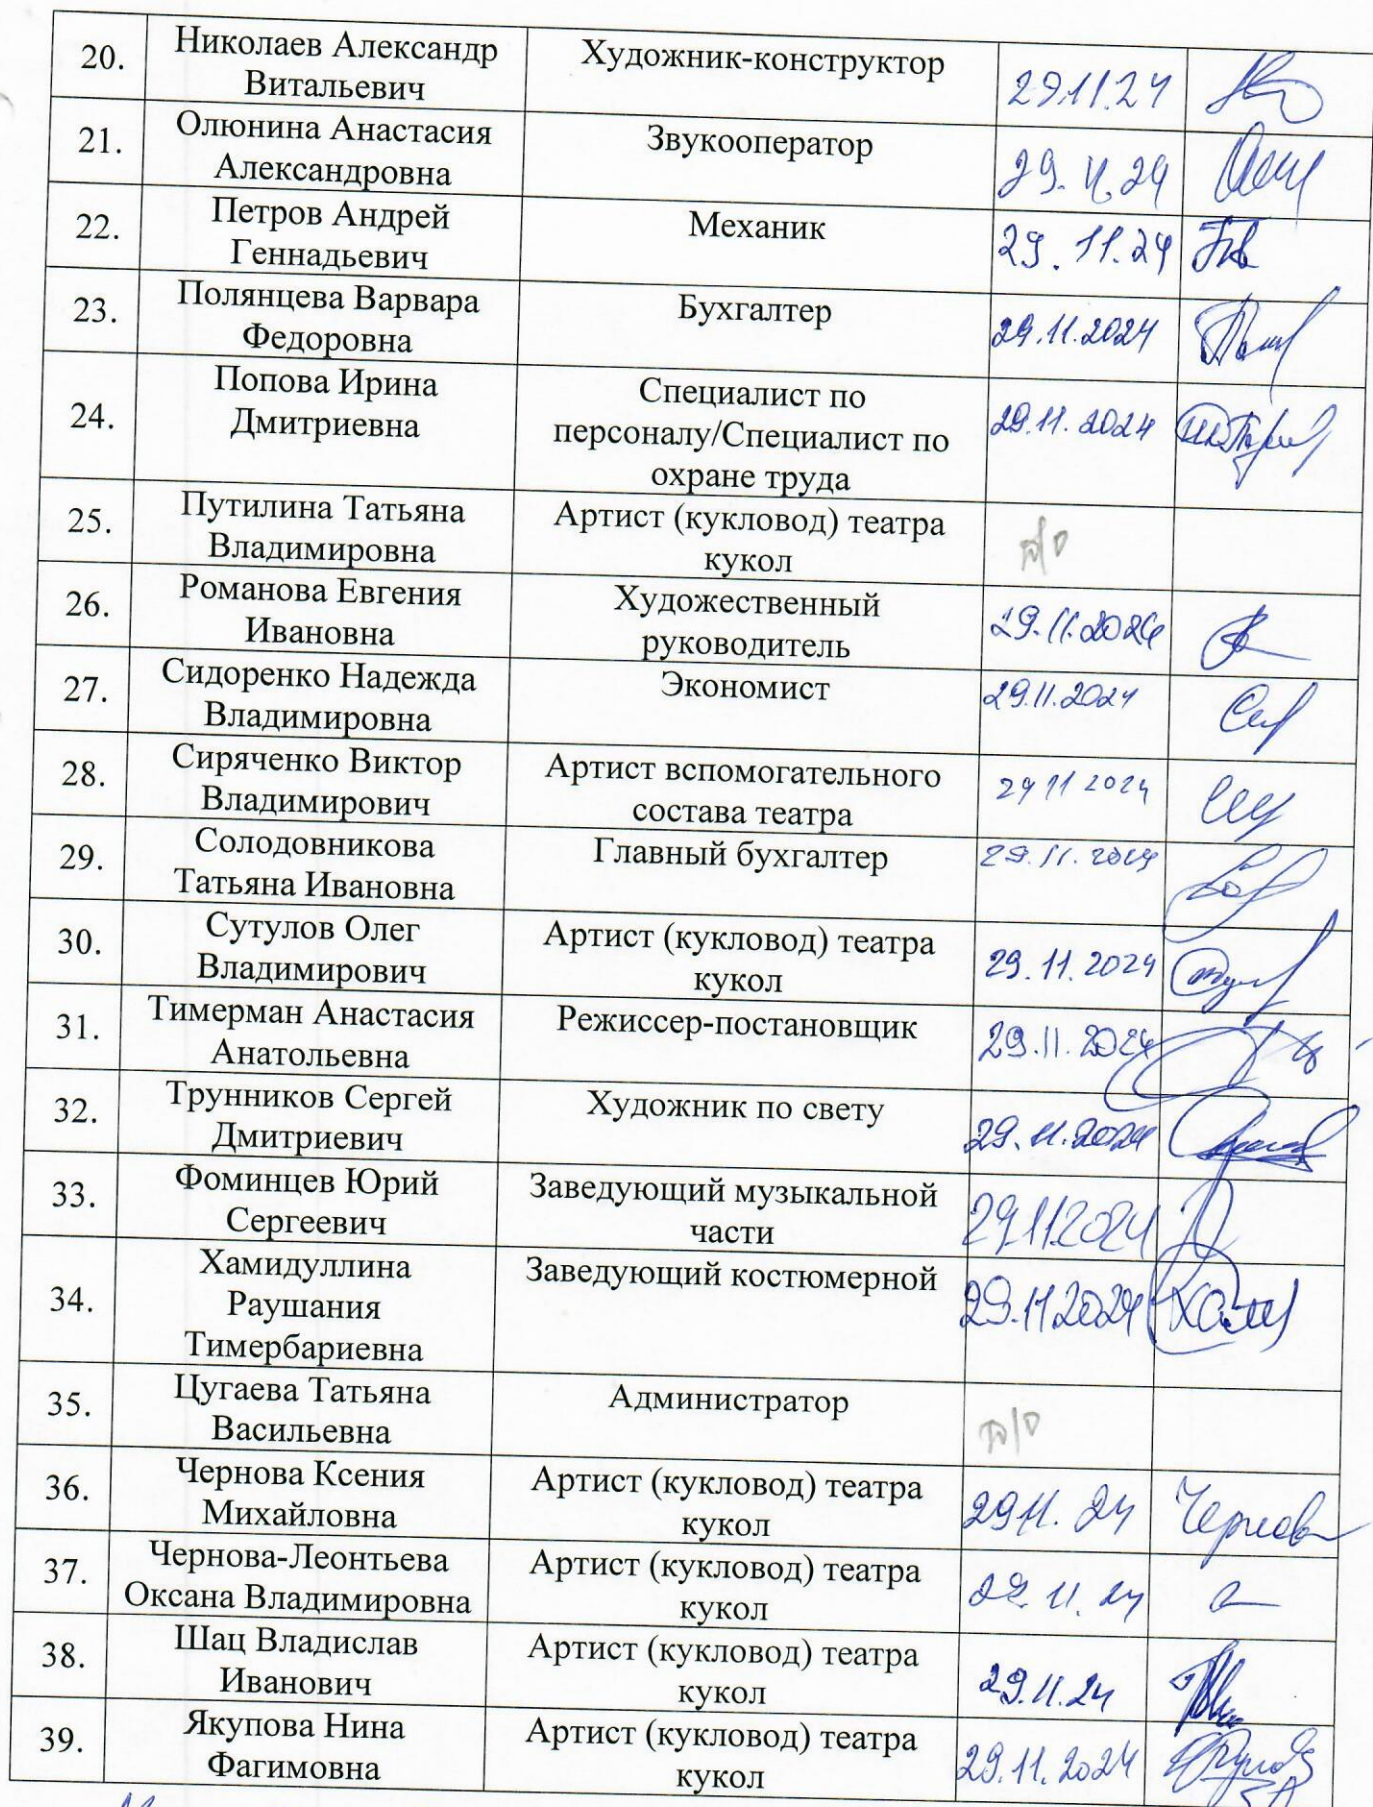 20.
Николаев Александр
Витальевич
Художник-конструктор
29.11.24
21.
Олюнина Анастасия
Александровна
Звукооператор
29.11.24
22.
Петров Андрей
Геннадьевич
Механик
29.11.24
23.
Полянцева Варвара
Федоровна
Бухгалтер
29.11.2024
24.
Попова Ирина
Дмитриевна
Специалист по
персоналу/Специалист по
охране труда
29.11.2024
25.
Путилина Татьяна
Владимировна
Артист (кукловод) театра
кукол
26.
Романова Евгения
Ивановна
Художественный
руководитель
29.11.2024
27.
Сидоренко Надежда
Владимировна
Экономист
29.11.2024
28.
Сиряченко Виктор
Владимирович
Артист вспомогательного
состава театра
29 11 2024
29.
Солодовникова
Татьяна Ивановна
Главный бухгалтер
29.11.2024
30.
Сутулов Олег
Владимирович
Артист (кукловод) театра
кукол
29.11.2024
31.
Тимерман Анастасия
Анатольевна
Режиссер-постановщик
29.11.2024
32.
Трунников Сергей
Дмитриевич
Художник по свету
29.11.2024
33.
Фоминцев Юрий
Сергеевич
Заведующий музыкальной
части
29.11.2024
34.
Хамидуллина
Раушания
Тимербариевна
Заведующий костюмерной
29.11.2024
35.
Цугаева Татьяна
Васильевна
Администратор
36.
Чернова Ксения
Михайловна
Артист (кукловод) театра
кукол
29.11.24
37.
Чернова-Леонтьева
Оксана Владимировна
Артист (кукловод) театра
кукол
29.11.24
38.
Шац Владислав
Иванович
Артист (кукловод) театра
кукол
29.11.24
39.
Якупова Нина
Фагимовна
Артист (кукловод) театра
кукол
29.11.2024